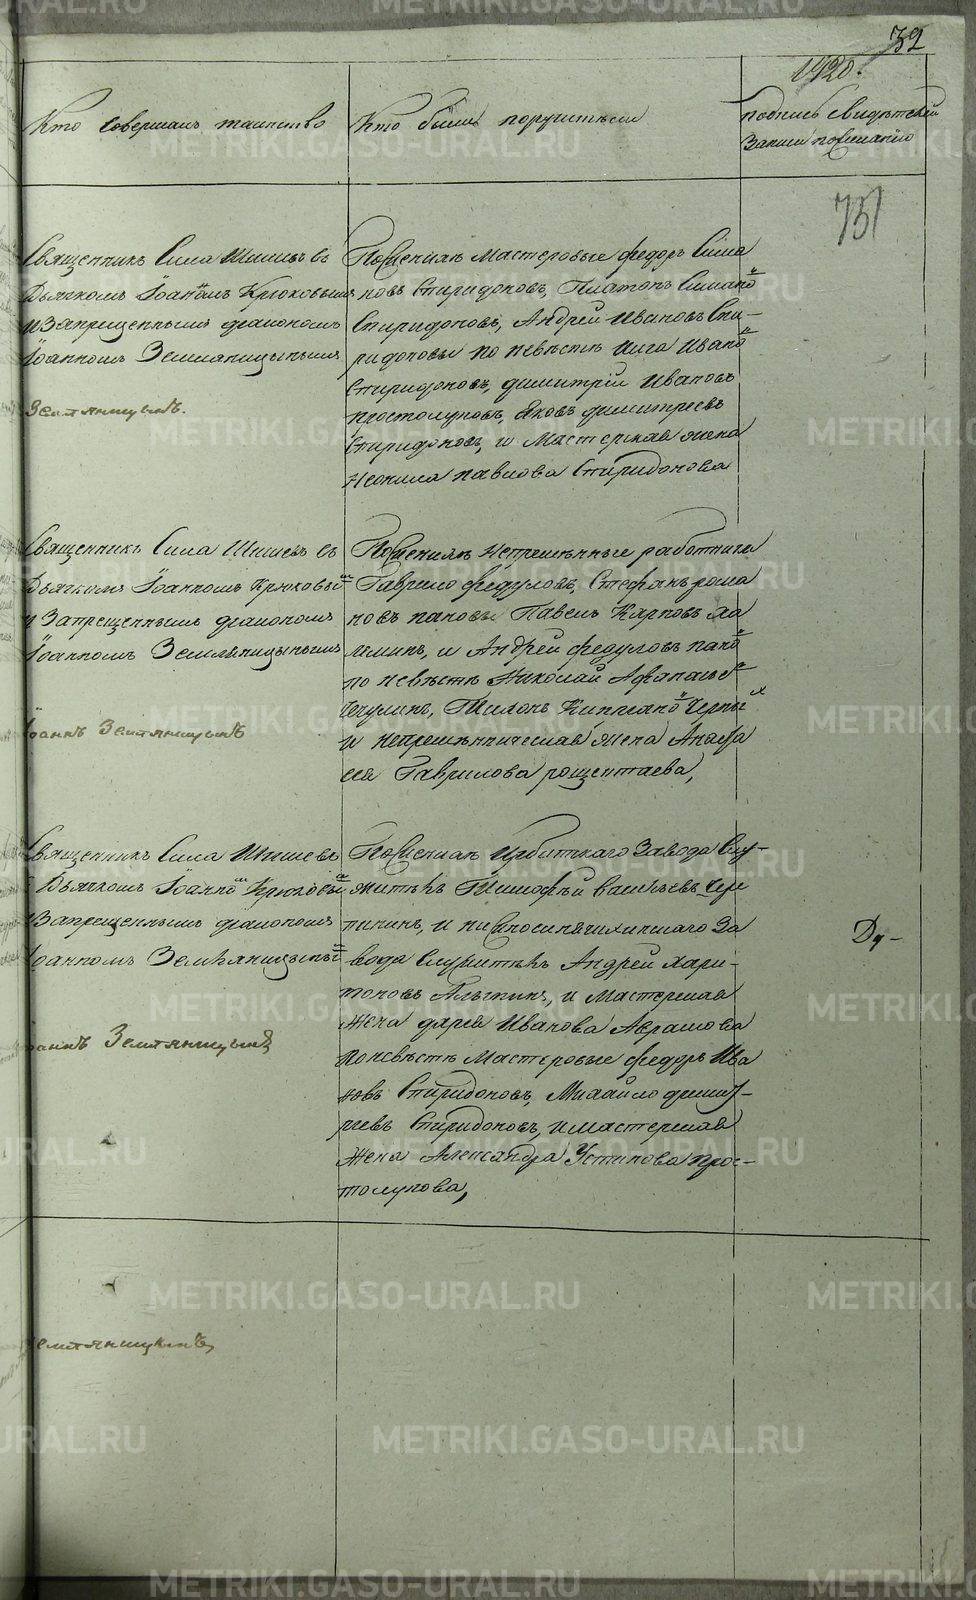 32
1420.
Кто совершалъ таинство
Кто были поручители
подпись свидѣтелей
записи по желанію
751
Священникъ Сила Шишевъ съ
Дьячкомъ Іоанномъ Крюковымъ
и Запрещеннымъ діакономъ
Іоанномъ Земляницынымъ
Земляницынъ.
По женихѣ Мастеровые Федоръ Сима
новъ Спиридоновъ, Платонъ Симано
Спиридоновъ, Андрей Ивановъ Спи-
ридоновы по невѣстѣ Ивано
Спиридоновъ, Димитрій Ивановъ
Простолуповъ, Яковъ Димитріевъ
Спиридоновъ, и Мастерская жена
Неонила Павлова Спиридонова
Священникъ Сила Шишевъ съ
Дьячкомъ Іоанномъ Крюковы
и Запрещеннымъ діакономъ
Іоанномъ Земляницынымъ
Іоаннъ Земляницынъ
По женихѣ Непремѣнные работники
Гаврило Федуловъ, Стефанъ Рома
новъ Пановы Павелъ Карповъ Ха
ляминъ, и Андрей Федуловъ Пано
по невѣстѣ Николай Афанасье
Чечулинъ, Тихонъ Кипріано Черны
и непремѣнническая жена Анаста
сія Гаврилова Рощектаева,
Священникъ Сила Шишевъ
Дьячкомъ Іоанно Крюковы
Запрещеннымъ діакономъ
Іоанномъ Земляницыны
Іоаннъ Земляницынъ
По женихѣ Ирбитскаго Завода Слу-
житель Тимофей Васильевъ Чере
панинъ, и Нижносинячихинскаго За
вода Служитель Андрей Хари-
тоновъ Алыпкинъ, и Мастерская
Жена Дарья Иванова Абрамова
По невѣстѣ Мастеровые Федоръ Ива
новъ Спиридоновъ, Михайло Димит-
ріевъ Спиридоновъ, и Мастерская
Жена Александра Устинова Прос-
толупова,
Ду-
Земляницынъ
METRIKI.GASO-URAL.RU